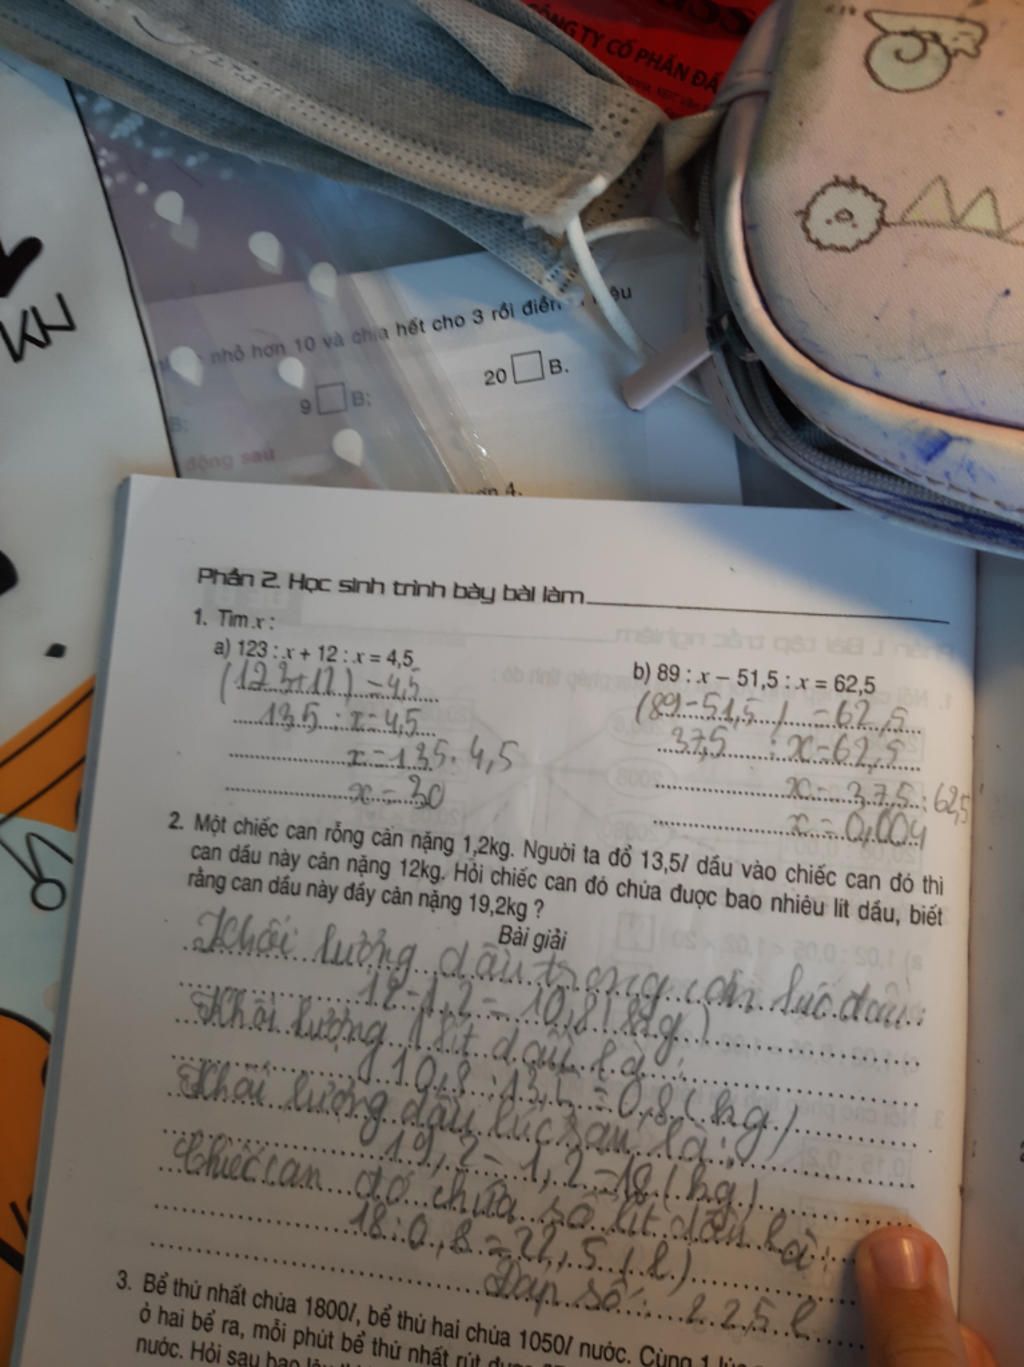 CÔNG TY CỔ PHẦN ĐẦ
KH
nhỏ hơn 10 và chia hết cho 3 rồi điền
9 □ B;
20 □ B.
B;
động sau
Phần 2. Học sinh trình bày bài làm
1. Tìm x :
a) 123 : x + 12 : x = 4,5
(123+12) = 4,5
135 : x = 4,5
x = 135 . 4,5
x = 30
b) 89 : x − 51,5 : x = 62,5
(89-51,5) = 62,5
37,5 : x = 62,5
x = 37,5 : 62,5
x = 0,004
2. Một chiếc can rỗng cân nặng 1,2kg. Người ta đổ 13,5l dầu vào chiếc can đó thì
can dầu này cân nặng 12kg. Hỏi chiếc can đó chứa được bao nhiêu lít dầu, biết
rằng can dầu này đầy cân nặng 19,2kg ?
Bài giải
Khối lượng dầu trong can lúc đầu:
12-1,2 = 10,8 (kg)
Khối lượng 1 lít dầu là:
10,8 : 13,5 = 0,8 (kg)
Khối lượng dầu lúc sau là:
19,2 - 1,2 = 18 (kg)
Chiếc can đó chứa số lít dầu là:
18 : 0,8 = 22,5 (l)
Đáp số: 22,5 l
3. Bể thứ nhất chứa 1800l, bể thứ hai chứa 1050l nước. Cùng 1
ở hai bể ra, mỗi phút bể thứ nhất rút
nước. Hỏi sau bao